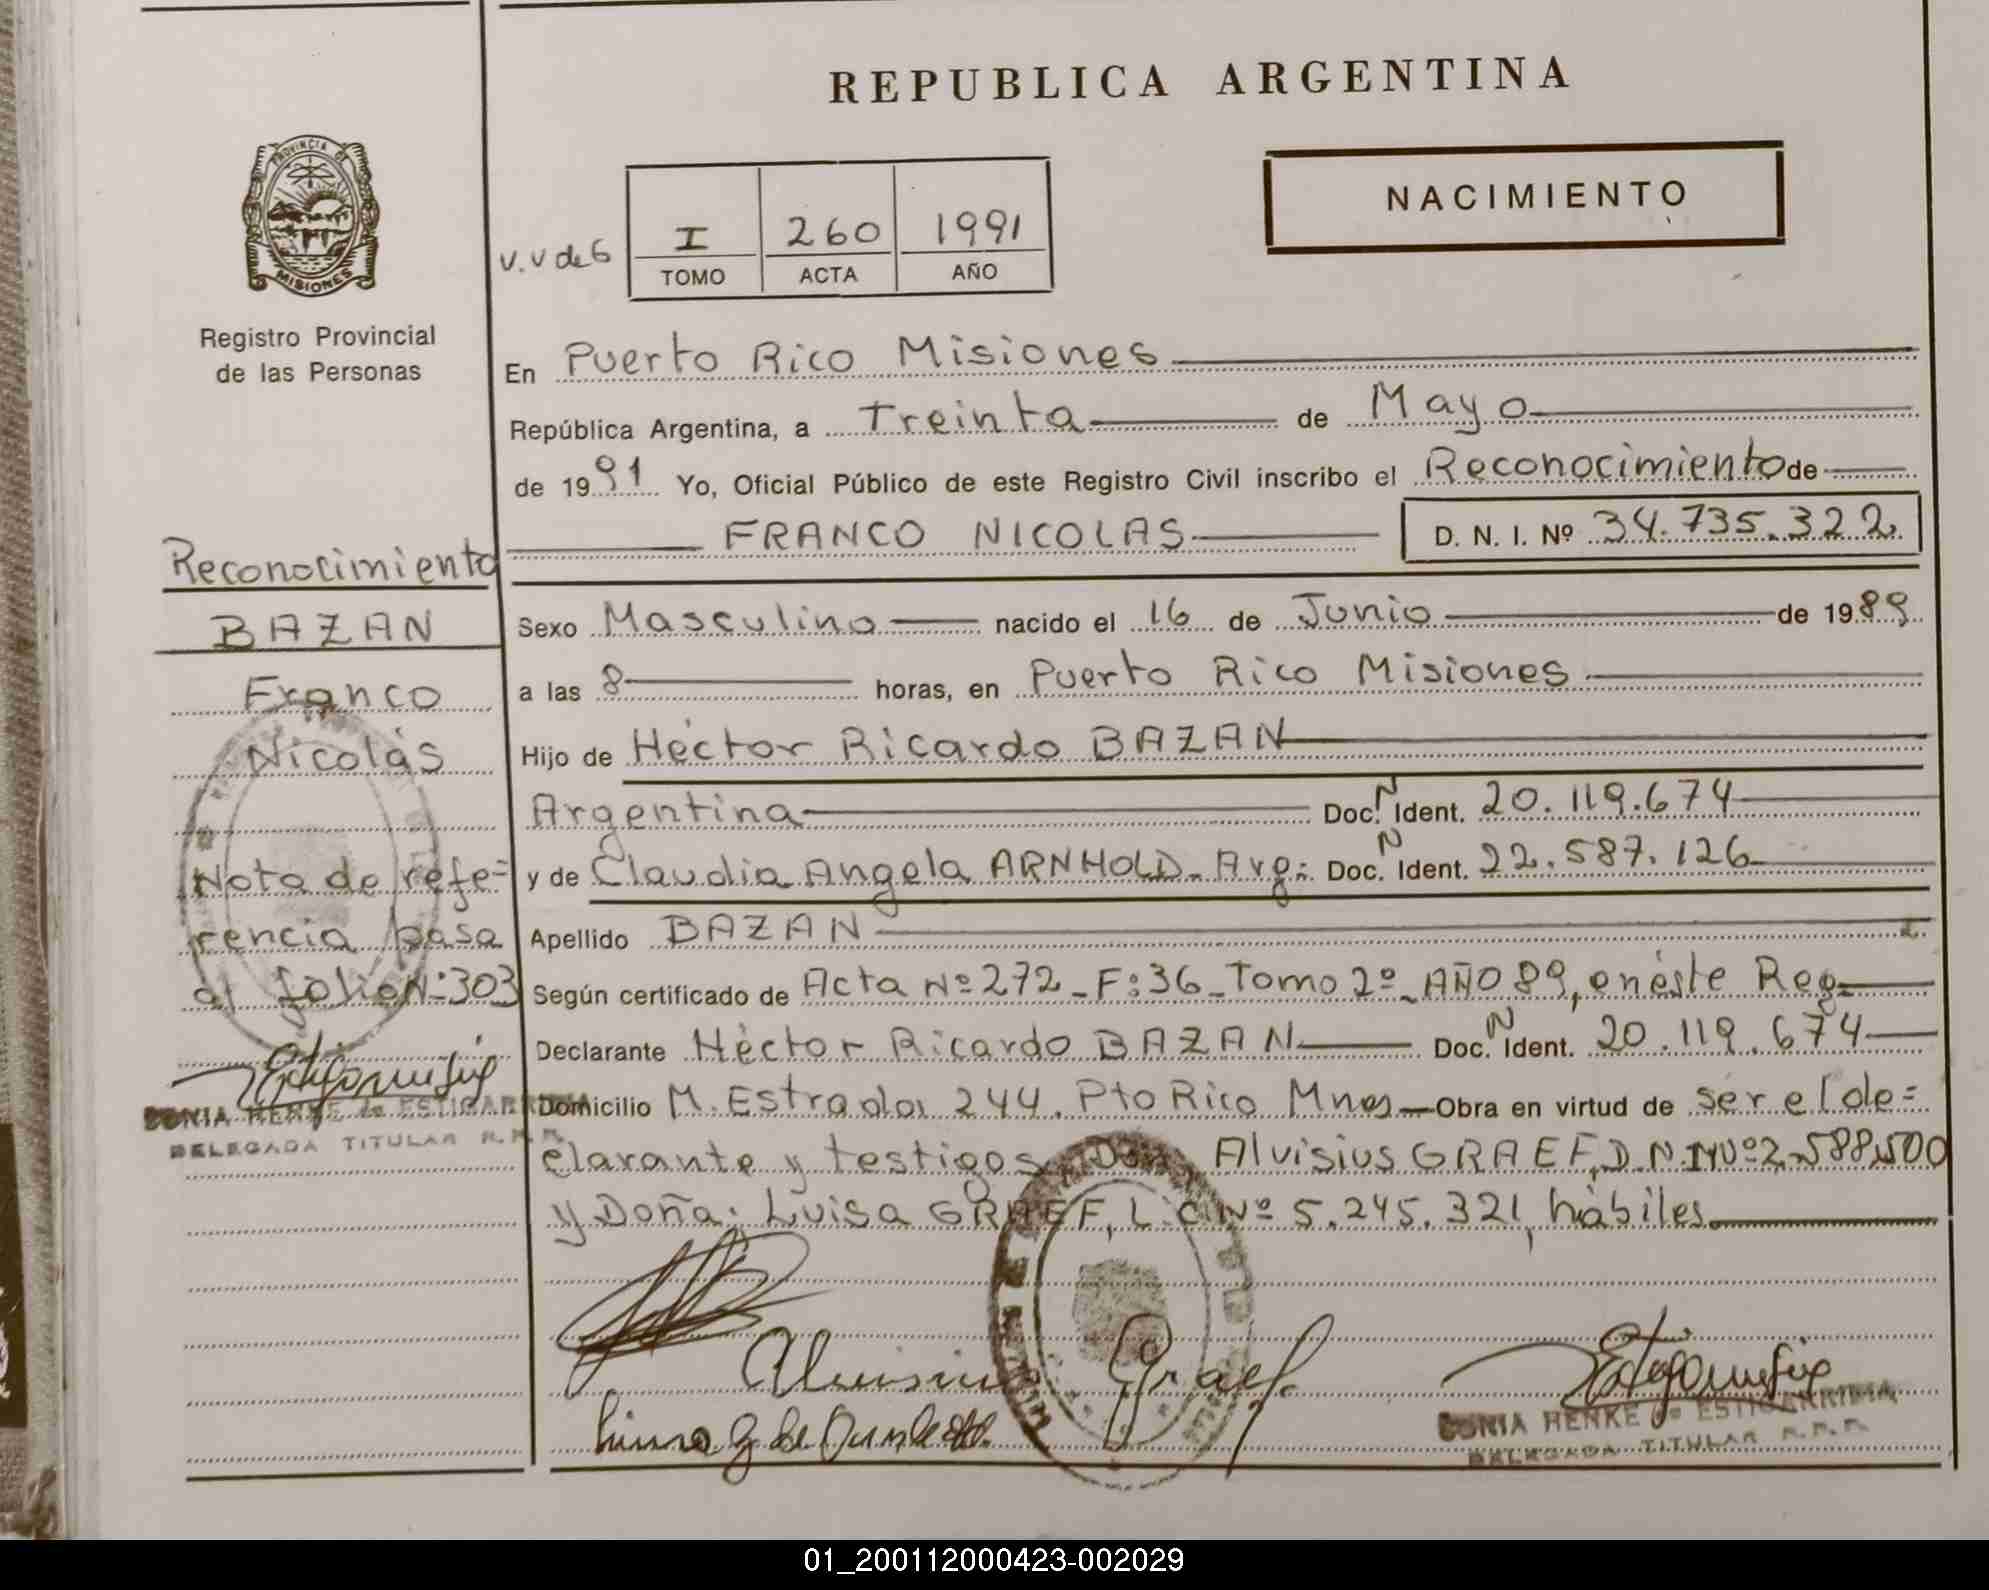 REPUBLICA ARGENTINA
NACIMIENTO
PROVINCIA DE
MISIONES
Registro Provincial
de las Personas
v.v de 6
I 260 1991
TOMO ACTA AÑO
En Puerto Rico Misiones
República Argentina, a Treinta de Mayo
de 1991 Yo, Oficial Público de este Registro Civil inscribo el Reconocimiento de
FRANCO NICOLAS D. N. I. Nº 34.735.322
Sexo Masculino nacido el 16 de Junio de 1989
a las 8 horas, en Puerto Rico Misiones
Hijo de Héctor Ricardo BAZAN
Argentina Doc. N Ident. 20.119.674
y de Claudia Angela ARNHOLD - Arg: Doc. N Ident. 22.587.126
Apellido BAZAN
Según certificado de Acta Nº 272 - F: 36 - Tomo 2º - AÑO 89, en éste Reg
Declarante Héctor Ricardo BAZAN Doc. N Ident. 20.119.674
Domicilio M. Estrada 244. Pto Rico Mnes Obra en virtud de ser el de=
clarante y testigos Don Aluisius GRAEF, D.N.I Nº 2.588.500
y Doña: Luisa GRAEF, L.C. Nº 5.245.321, hábiles
Reconocimiento
BAZAN
Franco
Nicolás
Nota de refe=
rencia pasa
al folio Nº 303
SONIA HENKE de ESTIGARRIBIA
DELEGADA TITULAR R.P.P.
Graef
SONIA HENKE de ESTIGARRIBIA
DELEGADA TITULAR R.P.P.
01_200112000423-002029